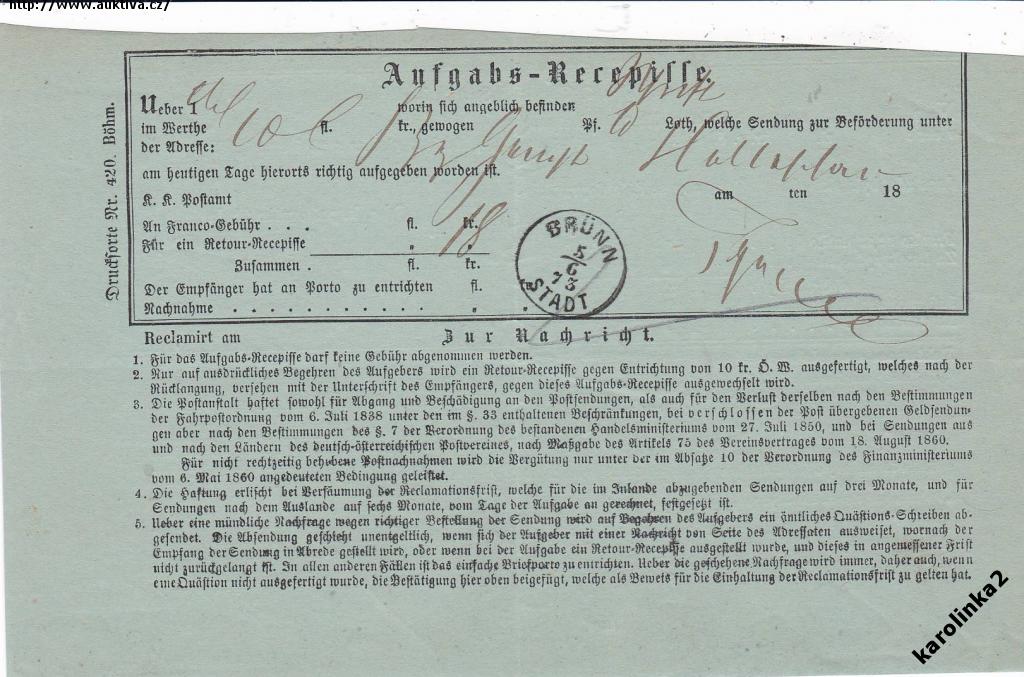 http://www.auktiva.cz/
Aufgabs-Recepisse.
Ueber 1 worin sich angeblich befinden
im Werthe fl. kr., gewogen Pf. Loth, welche Sendung zur Beförderung unter
der Adresse:
am heutigen Tage hierorts richtig aufgegeben worden ist.
am ten 18
K. K. Postamt
An Franco-Gebühr . . . fl. kr.
18
Für ein Retour-Recepisse " "
Zusammen . fl. kr.
Der Empfänger hat an Porto zu entrichten fl.
Nachnahme . . . . . . . . . . . " "
BRÜNN
5
6
73
STADT
Drucksorte Nr. 420. Böhm.
Reclamirt am Zur Nachricht.
1. Für das Aufgabs-Recepisse darf keine Gebühr abgenommen werden.
2. Nur auf ausdrückliches Begehren des Aufgebers wird ein Retour-Recepisse gegen Entrichtung von 10 kr. Ö. W. ausgefertigt, welches nach der
Rücklangung, versehen mit der Unterschrift des Empfängers, gegen dieses Aufgabs-Recepisse ausgewechselt wird.
3. Die Postanstalt haftet sowohl für Abgang und Beschädigung an den Postsendungen, als auch für den Verlust derselben nach den Bestimmungen
der Fahrpostordnung vom 6. Juli 1838 unter den im §. 33 enthaltenen Beschränkungen, bei verschlossen der Post übergebenen Geldsendun-
gen aber nach den Bestimmungen des §. 7 der Verordnung des bestandenen Handelsministeriums vom 27. Juli 1850, und bei Sendungen aus
und nach den Ländern des deutsch-österreichischen Postvereines, nach Maßgabe des Artikels 75 des Vereinsvertrages vom 18. August 1860.
Für nicht rechtzeitig behobene Postnachnahmen wird die Vergütung nur unter der im Absatze 10 der Verordnung des Finanzministeriums
vom 6. Mai 1860 angedeuteten Bedingung geleistet.
4. Die Haftung erlischt bei Versäumung der Reclamationsfrist, welche für die im Inlande abzugebenden Sendungen auf drei Monate, und für
Sendungen nach dem Auslande auf sechs Monate, vom Tage der Aufgabe an gerechnet, festgesetzt ist.
5. Ueber eine mündliche Nachfrage wegen richtiger Bestellung der Sendung wird auf Begehren des Aufgebers ein ämtliches Quästions-Schreiben ab-
gesendet. Die Absendung geschieht unentgeltlich, wenn sich der Aufgeber mit einer Nachricht von Seite des Adressaten ausweiset, wornach der
Empfang der Sendung in Abrede gestellt wird, oder wenn bei der Aufgabe ein Retour-Recepisse ausgestellt wurde, und dieses in angemessener Frist
nicht zurückgelangt ist. In allen anderen Fällen ist das einfache Briefporto zu entrichten. Ueber die geschehene Nachfrage wird immer, daher auch, wenn
eine Quästion nicht ausgefertigt wurde, die Bestätigung hier oben beigefügt, welche als Beweis für die Einhaltung der Reclamationsfrist zu gelten hat.
karolinka2